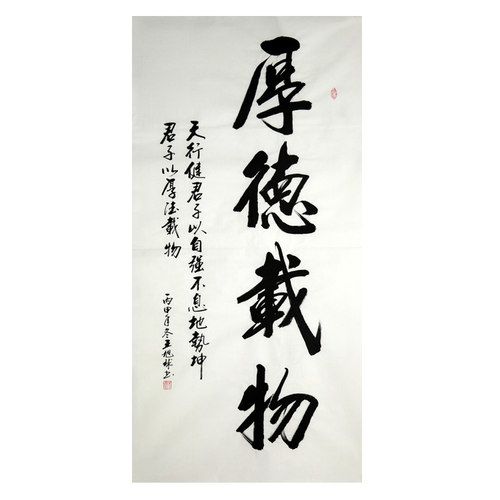 厚德載物
天行健君子以自強不息地勢坤
君子以厚德載物
丙申年冬王旭球书